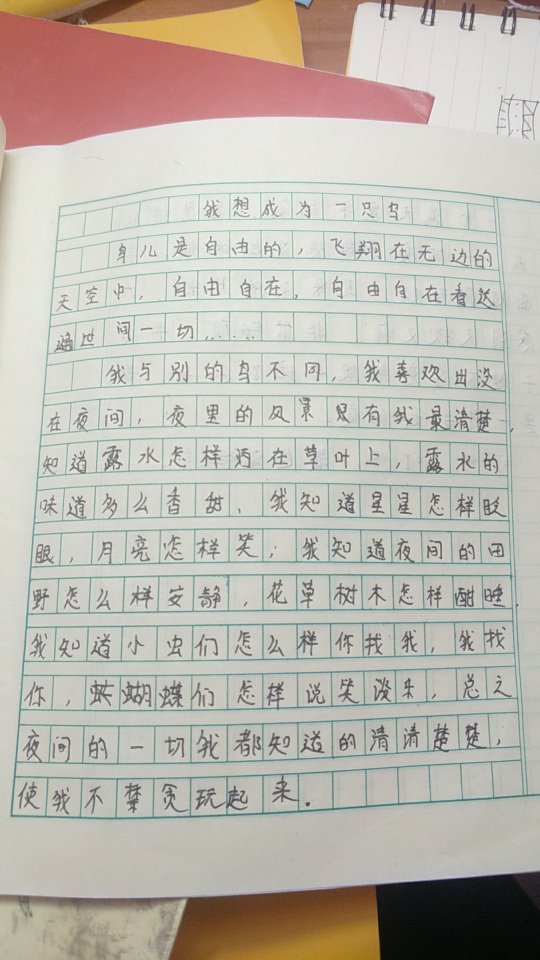 我想成为一只鸟
鸟儿是自由的，飞翔在无边的
天空中，自由自在，自由自在看送
遍过间一切……
我与别的鸟不同，我喜欢出没
在夜间，夜里的风景只有我最清楚，
知道露水怎样洒在草叶上，露水的
味道多么香甜、我知道星星怎样眨
眼，月亮怎样笑；我知道夜间的田
野怎么样安静，花草树木怎样酣睡，
我知道小虫们怎么样你找我，我找
你，蝴蝶们怎样说笑没来，总之
夜间的一切我都知道的清清楚楚，
使我不禁贪玩起来.